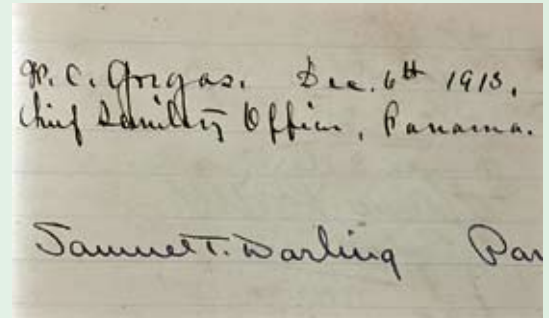 W. C. Gorgas. Dec. 6th 1913.
Chief Sanitary Officer, Panama.
Samuel T. Darling Pan